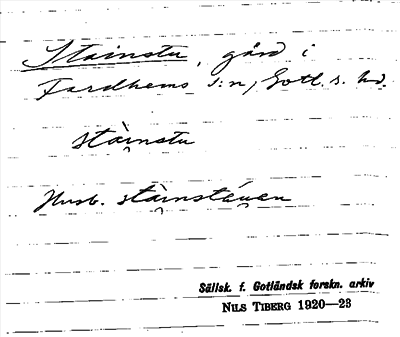 Stainstu, gård i
Fardhems s:n, Gotl. s. hd.
stài̯nstu
Husb. stài̯nstáu̯en
Sällsk. f. Gotländsk forskn. arkiv
NILS TIBERG 1920—23